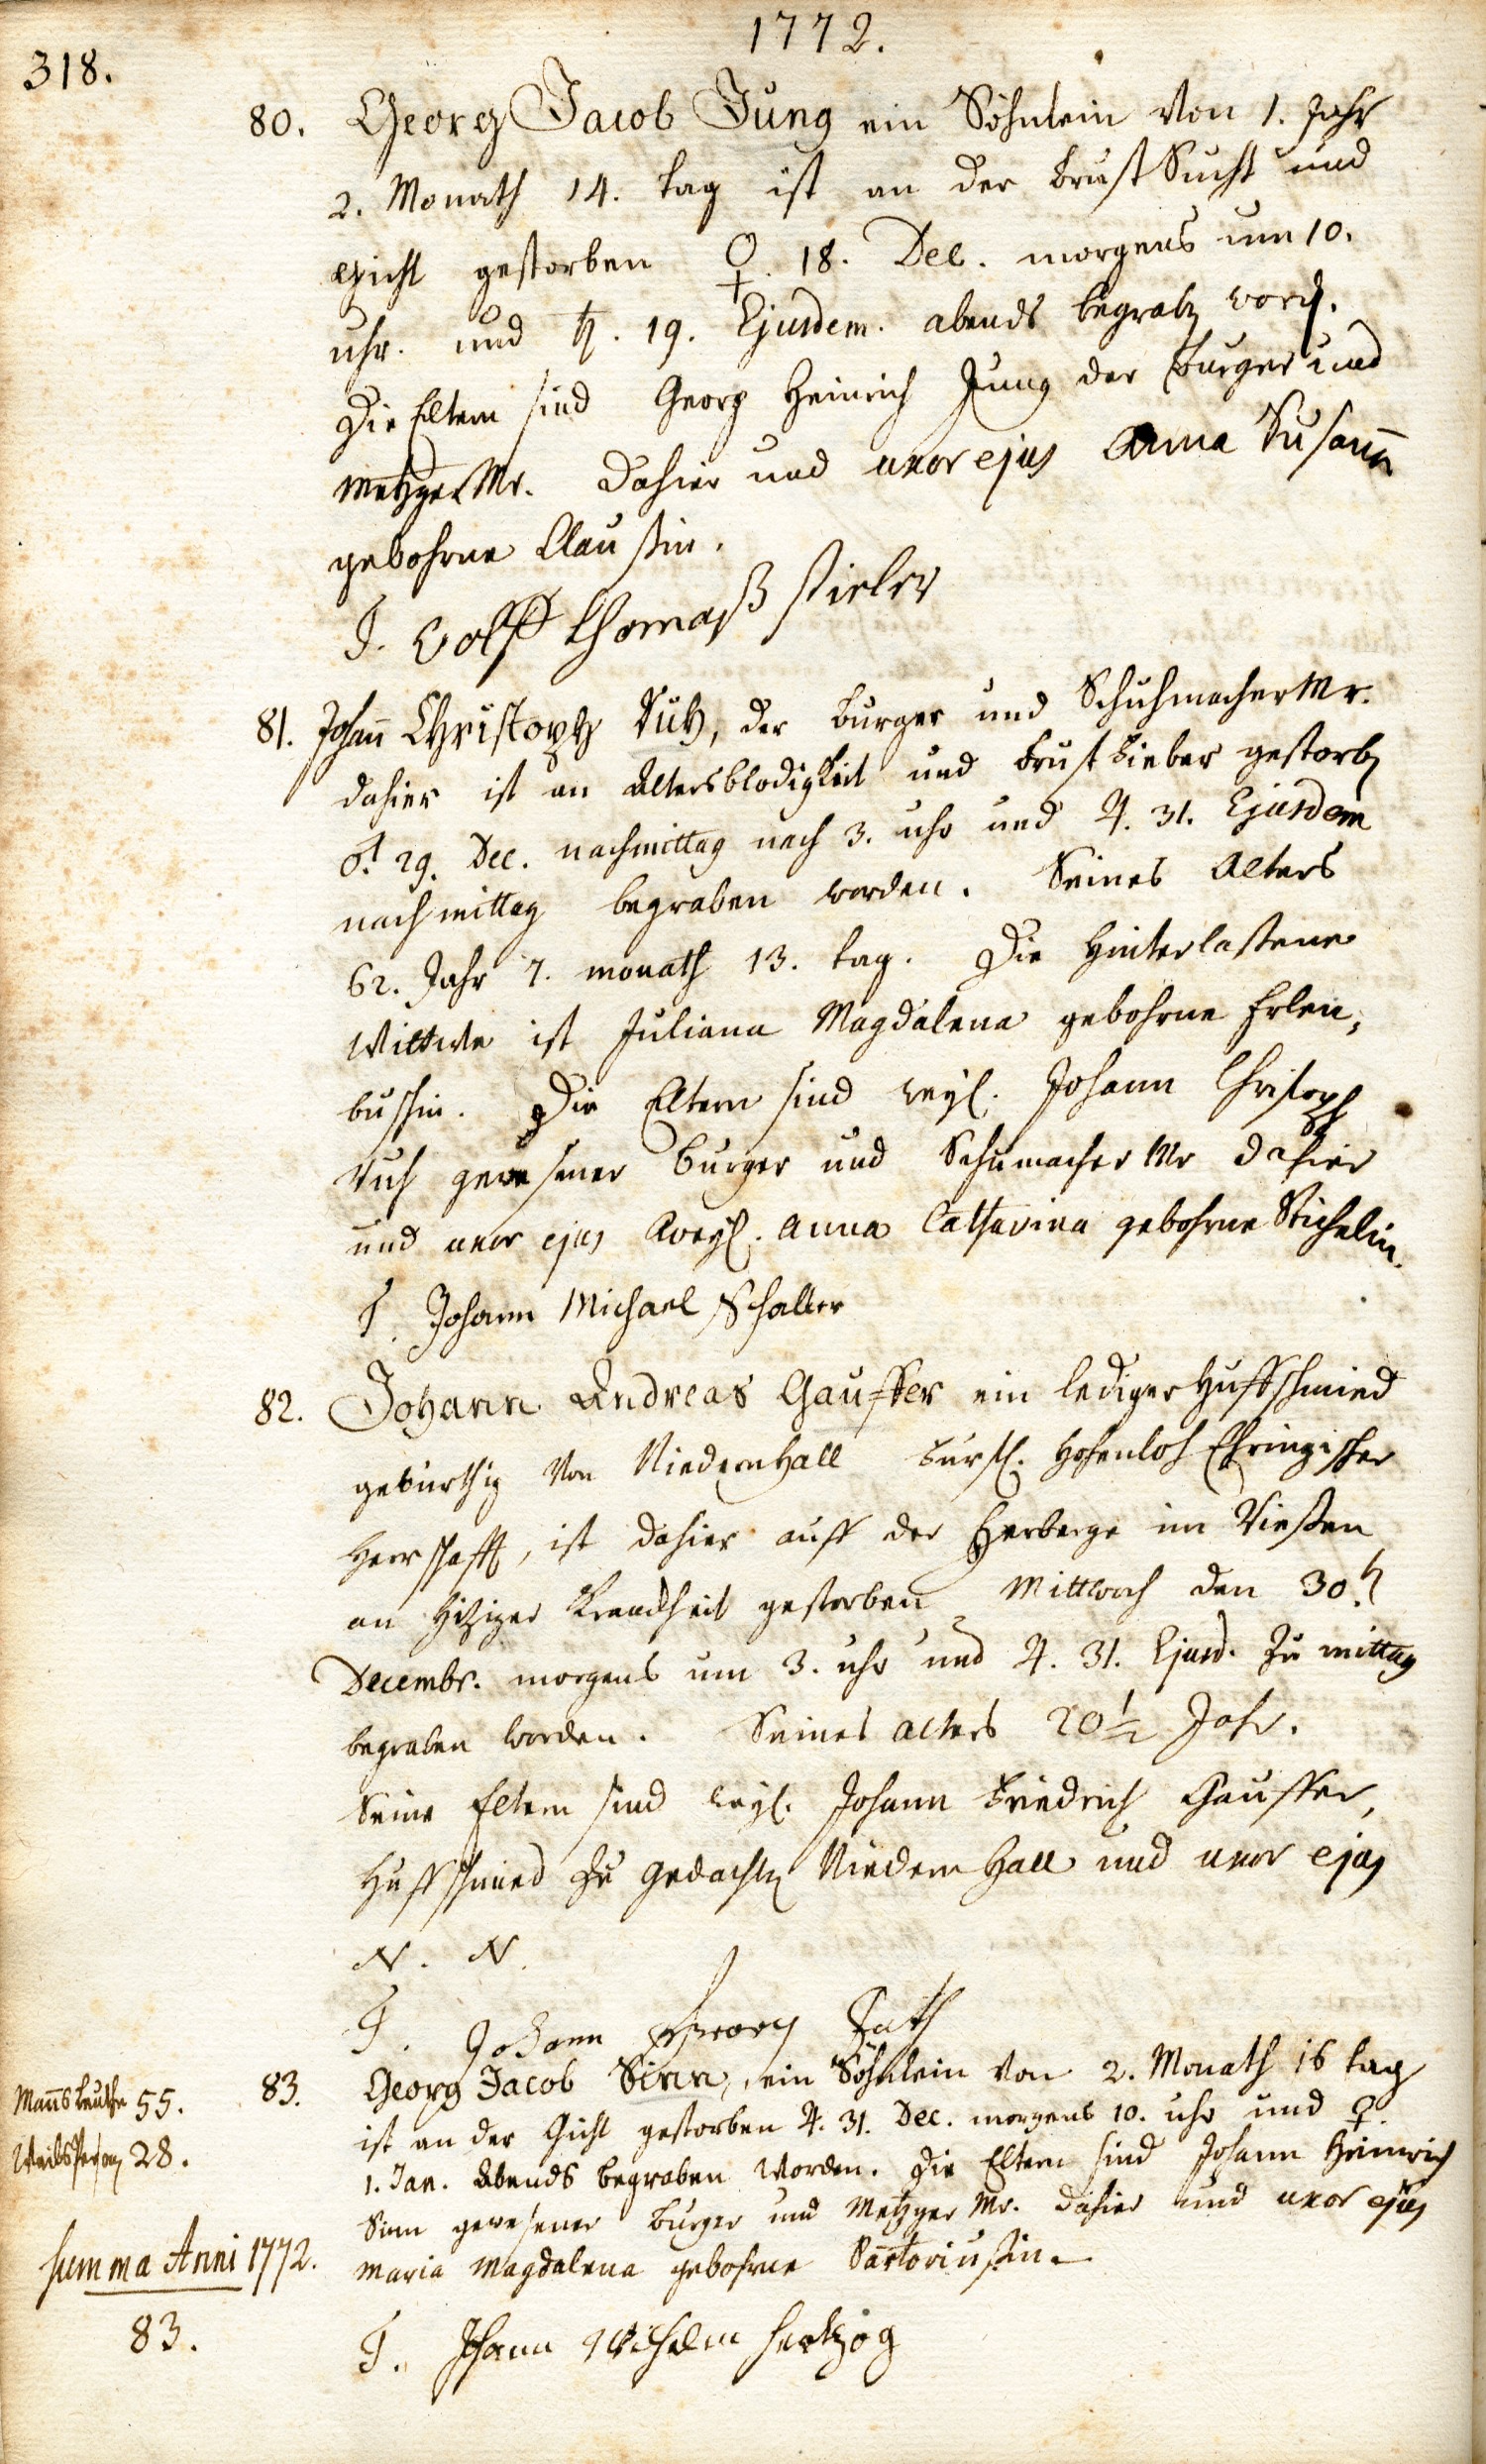 1772.
318.
80. Georg Jacob Jung ein Söhnlein von 1. Jahr
2. Monath 14. tag ist an der Brust Sucht und
Gicht gestorben ♀. 18. Dec. morgens um 10.
uhr. und ♄. 19. Ejusdem. abends begrabē word.
Die Eltern sind Georg Heinrich Jung der Burger und
Metzger Mr. dahier und uxor ejus Anna Susañ
gebohrne Claussin.
T. Wolff Thomaß Stieler
81. Johañ Christoph Ruth, der burger und Schuhmacher Mr.
dahier ist an Altersblödigkeit und Brust Fieber gestorbē
♂. 29. Dec. nachmittag nach 3. uhr und ♃. 31. Ejusdem
nachmittag begraben worden. Seines Alters
62. Jahr 7. monath 13. tag. Die Hinterlassene
Wittwe ist Juliana Magdalena gebohrne Erlen,
buschin. Die Eltern sind weyl. Johann Christoph
Ruth gewesener burger und Schumacher Mr dahier
und uxor ejus weyl. Anna Catharina gebohrne Stichelin.
T. Johann Michael Schaller
82. Johann Andreas Gauffer ein lediger Huffschmied
gebürthig von Niedernhall Fürstl. Hohenloh Ehringischer
Herrschafft, ist dahier auff der Herberge im Riesen
an hitziger Kranckheit gestorben Mittwoch den 30.
Decembr. morgens um 3. uhr und ♃. 31. Ejusd. zu mittag
begraben worden. Seines alters 20 1/2 Jahr.
Seine Eltern sind weyl. Johann Friedrich Gauffer,
Huffschmied zu gedachtē Niedern Hall und uxor ejus
N. N.
T. Johann Georg Fath
83. Georg Jacob Sinn, ein Söhnlein von 2. Monath 16 tag
ist an der Gicht gestorben ♃. 31. Dec. morgens 10. uhr und ♀.
1. Jan. Abends begraben worden. Die Eltern sind Johann Heinrich
Sinn gewesener Burger und Metzger Mr. dahier und uxor ejus
Maria Magdalena gebohrne Sartoriussin.
T. Johann Wilhelm Hertzog
Mañsleuthe 55.
Weibs Person 28.
Summa Anni 1772.
83.